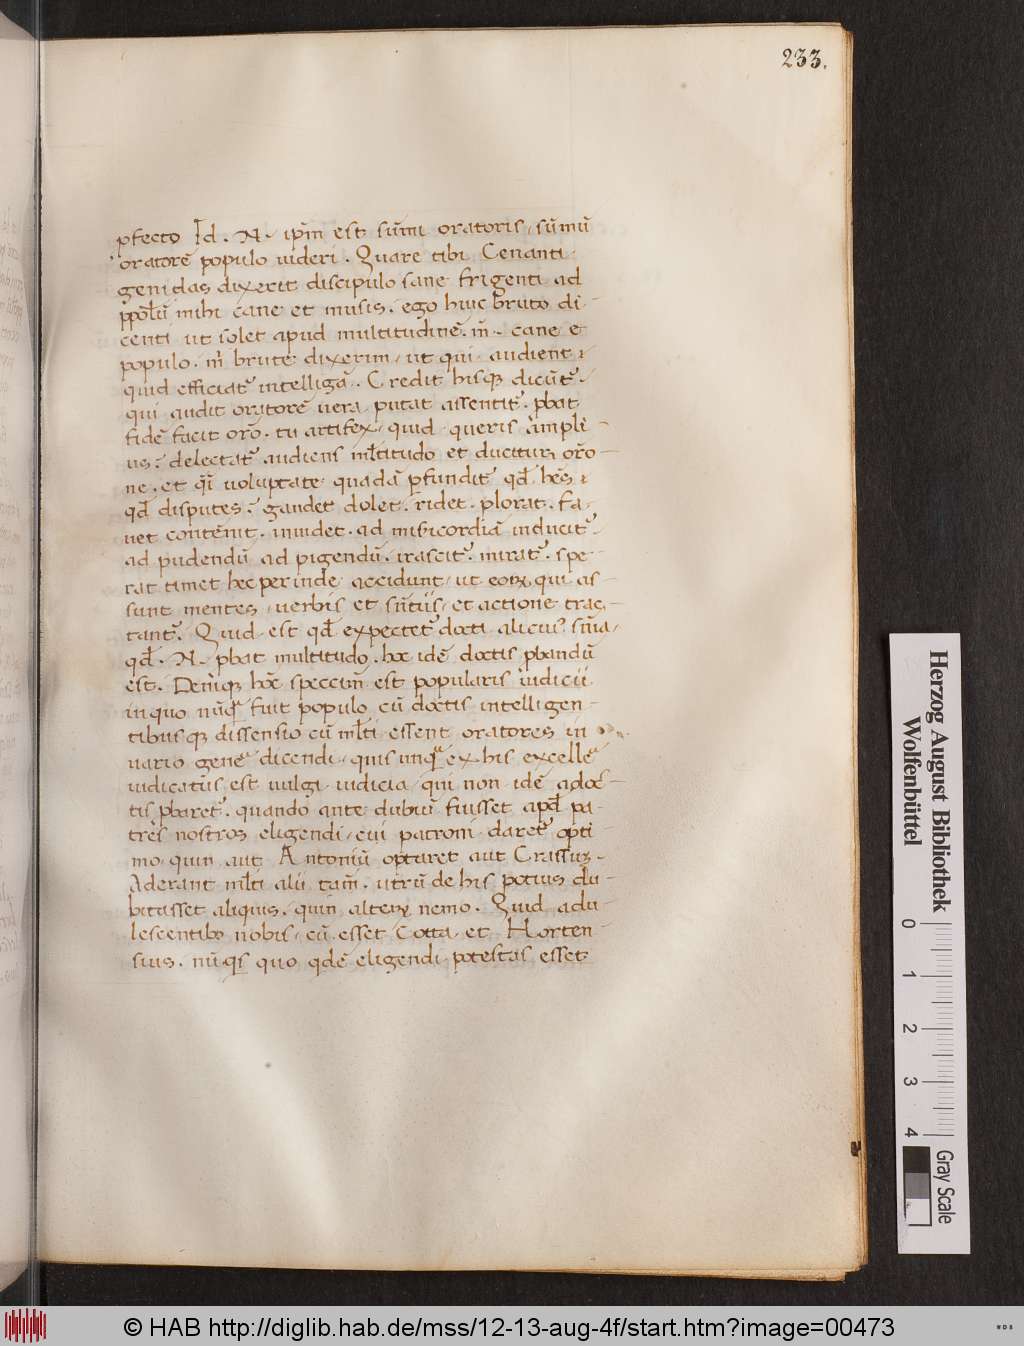 233.
pfecto Id. N. ipm̄ est sūmi oratoris, sūmū
oratorē populo uideri. Quare tibi Cenanti
geni das dixerit discipulo sane frigenti ad
ppl̄m mihi cane et musis. ego huic bruto di-
centi ut solet apud multitudinē. m̄. cane et
populo. m̄ brute dixerim, ut qui audient &
quid efficiat᷑ intelligā. Credit hisq; dicūt᷑.
qui audit oratorē uera putat assentit᷑. pbat
fidē facit or̄o. tu artifex quid queris ampli-
us? delectat᷑ audiens ml̄titudo et ducitur or̄o-
ne. et q̄i uoluptate quadā pfundit᷑ qd̄ hēs &
qd̄ disputes? gaudet dolet. ridet. plorat. fa-
uet contēnit. inuidet. ad misericordiā inducit᷑.
ad pudendū ad pigendū. irascit᷑. mirat᷑. spe-
rat timet hec perinde accidunt, ut eoꝝ qui as-
sunt mentes, uerbis et sn̄tiis, et actione trac-
tant᷑. Quid est qd̄ expectet᷑ docti alicui᷒ sn̄ia,
qd̄. N. pbat multitudo. hoc idē doctis pbandū
est. Deniq; hoc specim̄ est popularis iudicii
in quo nūq̄ fuit populo cū doctis intelligen-
tibusq; dissensio cū ml̄ti essent oratores in
uario genē dicendi, quis unq̄ ex his excellē
iudicatus est uulgi iudicia, qui non idē a doc-
tis pbaret᷑. quando ante dubiū fuisset apd̄ pa-
tres nostros eligendi, cui patroni daret᷑ opti-
mo quin aut Antoniū optaret aut Crassum.
Aderant ml̄ti alii tam̄. utrū de his potius du-
bitasset aliquis. quin alteꝝ nemo. Quid adu-
lescentibꝰ nobis, cū esset Cotta et Horten-
sius. nū q̄s quo qdē eligendi potestas esset
Herzog August Bibliothek
Wolfenbüttel
0 1 2 3 4
Gray Scale
© HAB http://diglib.hab.de/mss/12-13-aug-4f/start.htm?image=00473